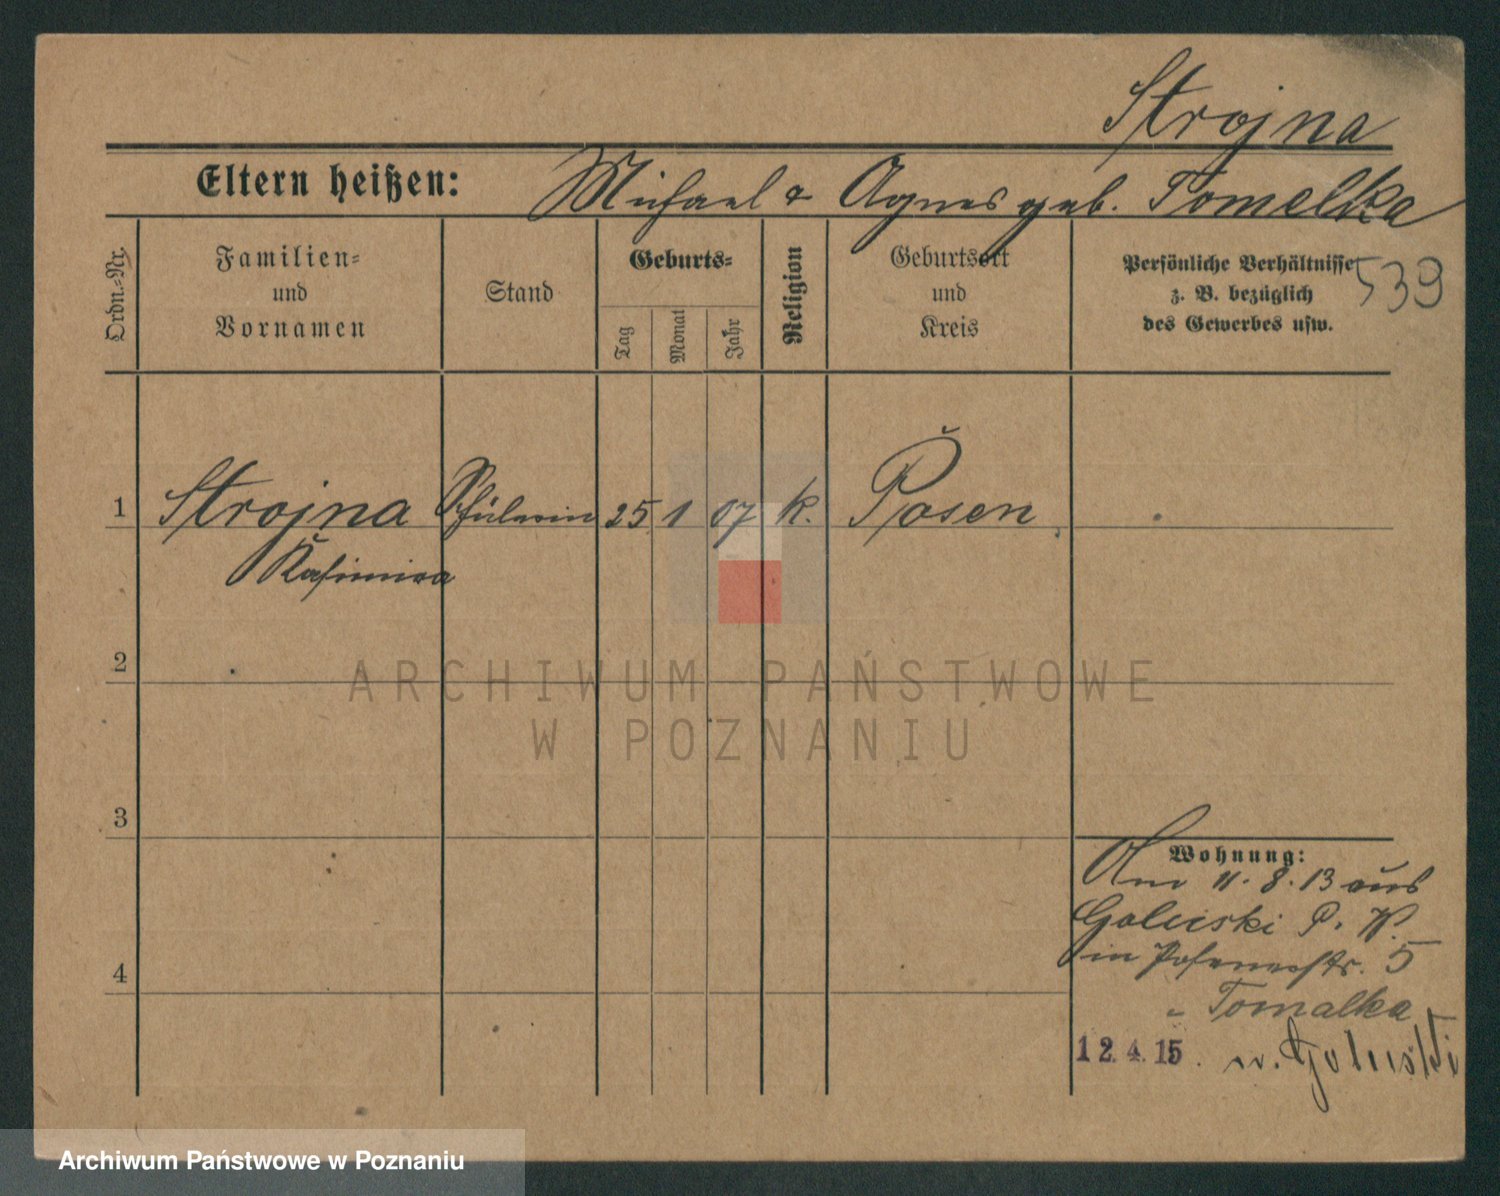 Strojna
Eltern heißen: Michael & Agnes geb. Tomelka
Ordn.-Nr.
Familien-
und
Vornamen
Stand
Geburts-
Tag
Monat
Jahr
Religion
Geburtsort
und
Kreis
Persönliche Verhältnisse
z. B. bezüglich
des Gewerbes usw.
539
1 Strojna Schülerin 25 1 07 k. Posen
Kasimira
2
3
4
Wohnung:
Am 11.8.13 aus
Goluski P. W.
in 5
" Tomalka
12.4.15. n. Goluski
ARCHIWUM PAŃSTWOWE
W POZNANIU
Archiwum Państwowe w Poznaniu